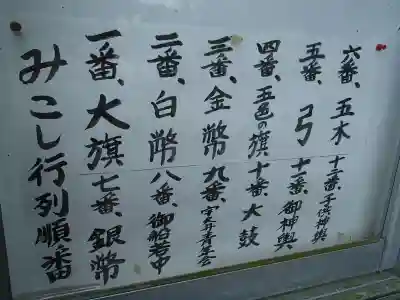 みこし行列順番
一番、大旗 七番、銀幣
二番、白幣 八番、御船若中
三番、金幣 九番、
四番、五色の旗、十番、大鼓
五番、弓 十一番、御神輿
六番、五木 十二番、子供神輿